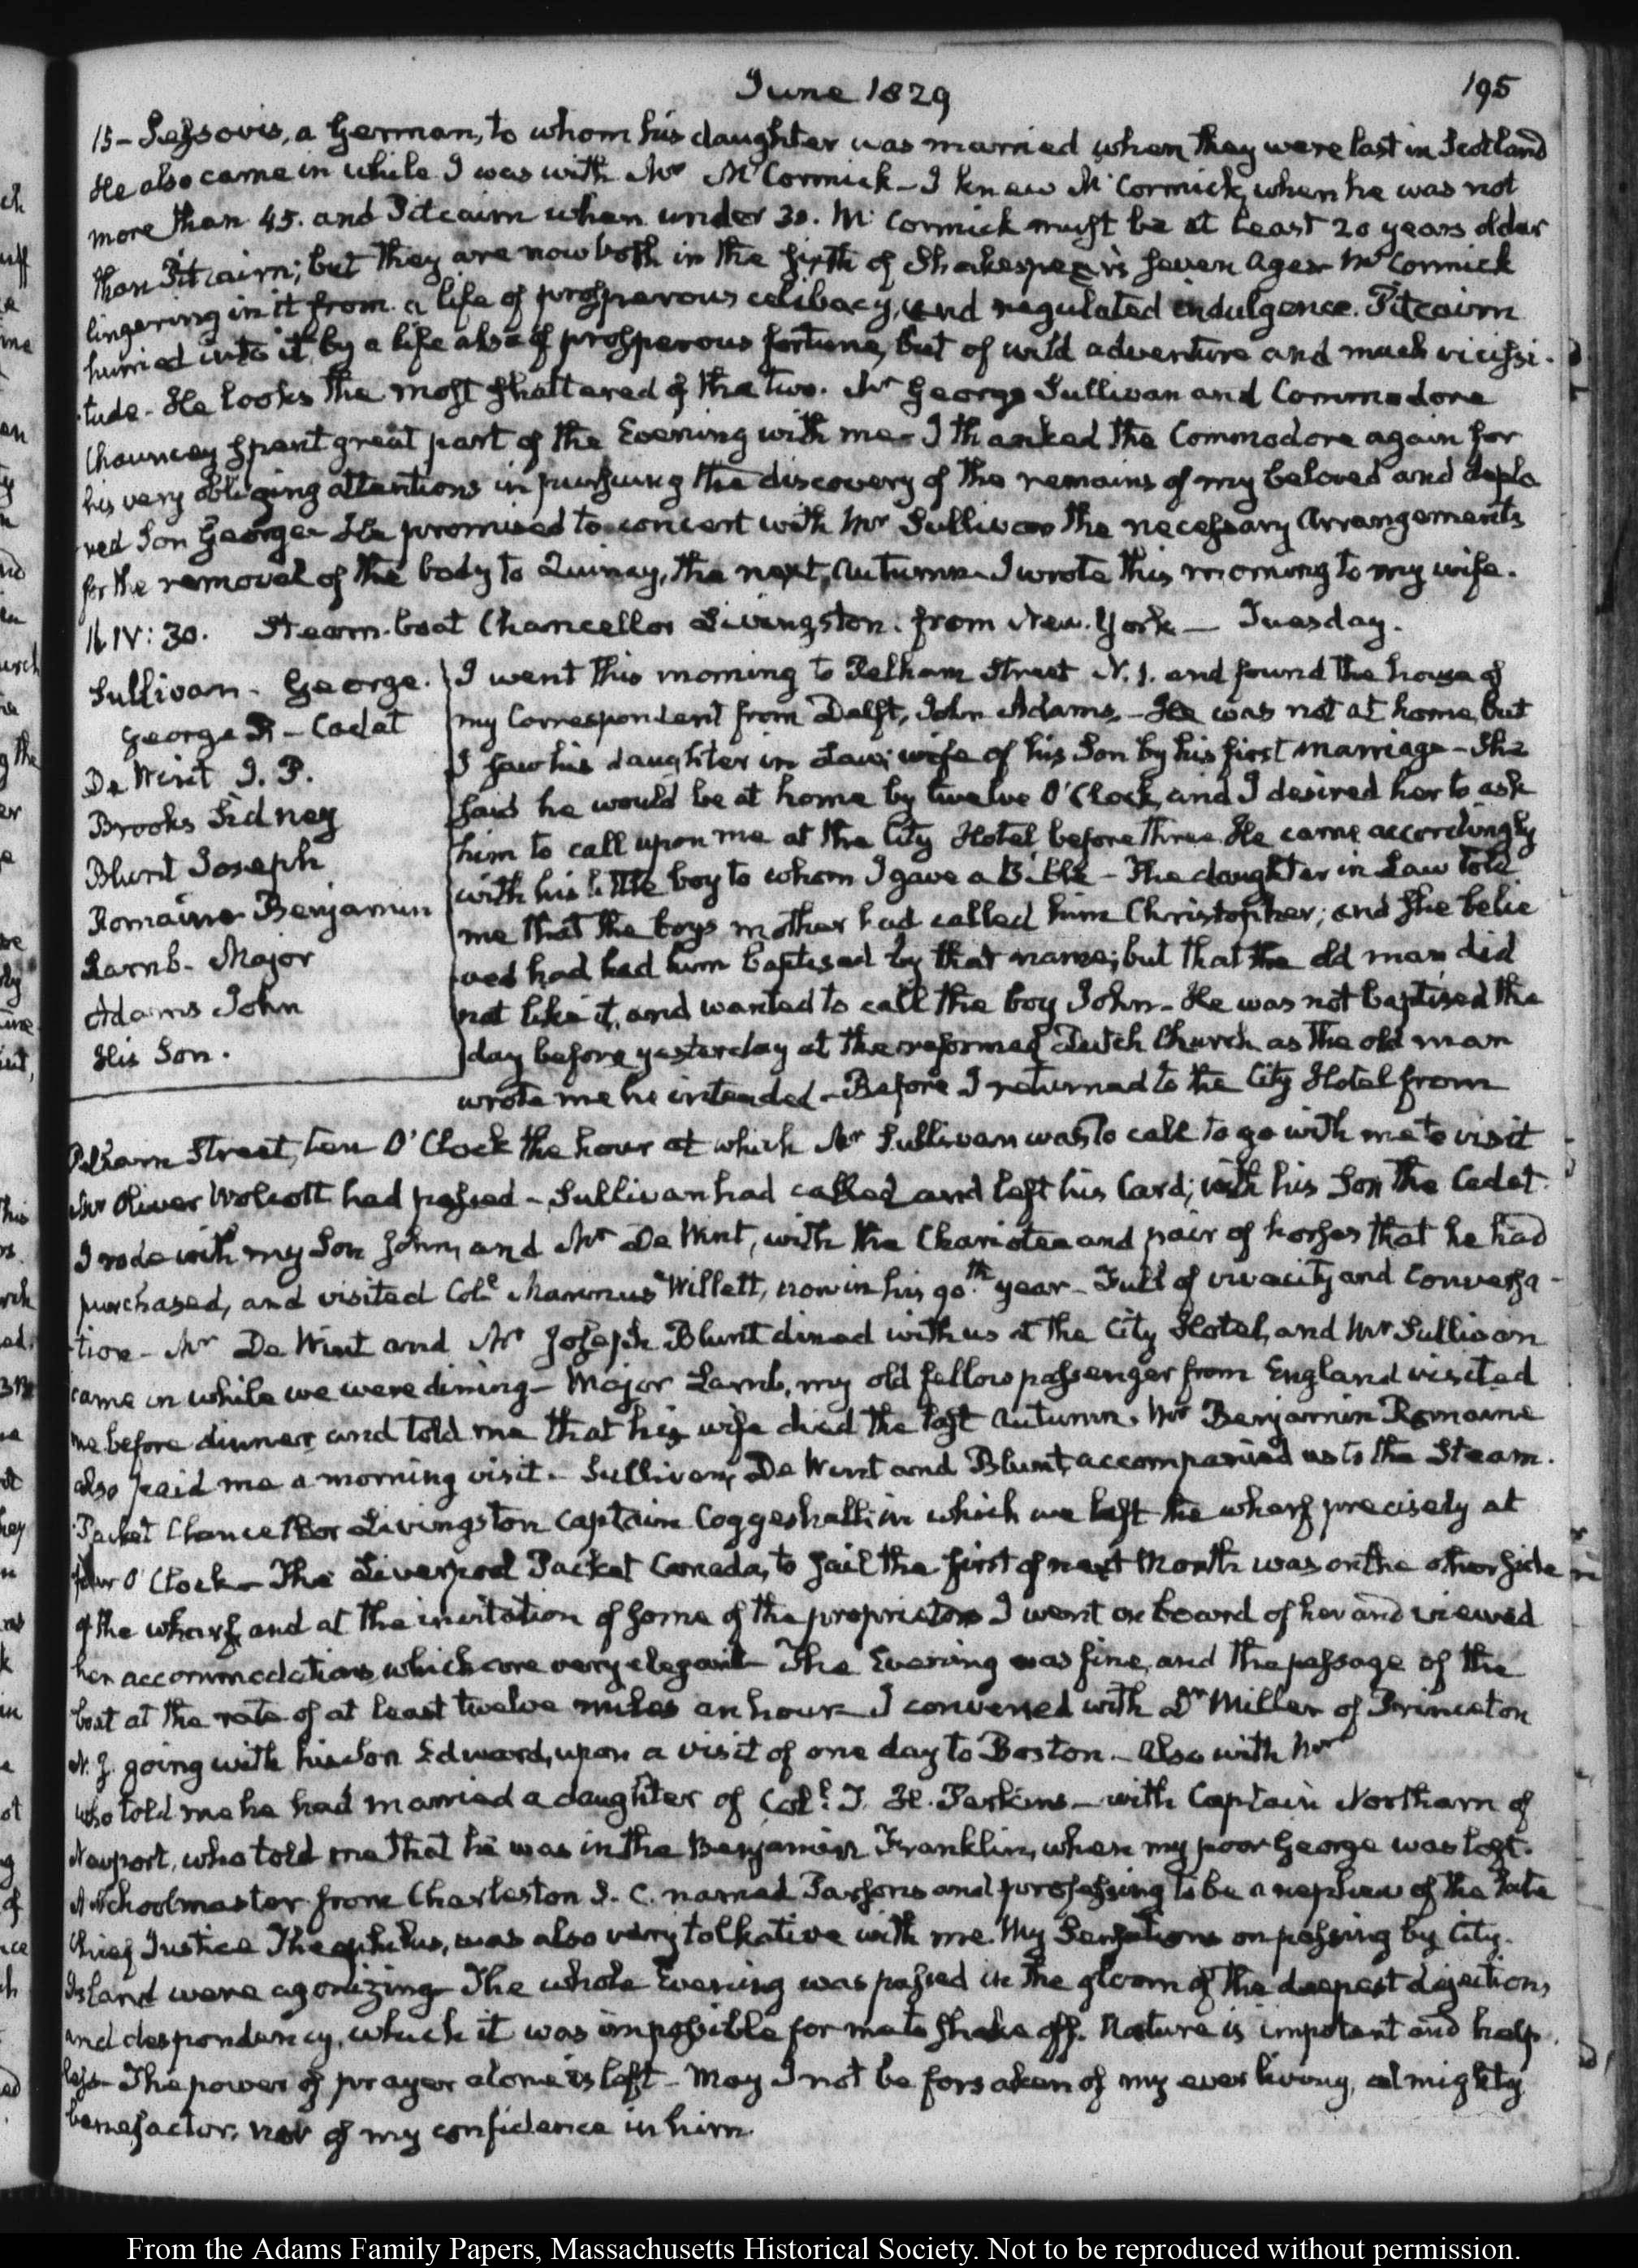 June 1829
195
15 – a German, to whom his daughter was married when they were last in Scotland
He also came in while I was with Mr McCormick – I knew McCormick, when he was not
more than 45. and Pitcairn when under 30. McCormick must be at least 20 years older
than Pitcairn; but they are now both in the sixth of Shakespear's seven ages – McCormick
lingering in it from a life of prosperous celibacy, and regulated indulgence. Pitcairn
hurried into it, by a life also of prosperous fortune, but of wild adventure and much vicissi-
-tude – He looks the most shattered of the two. Mr George Sullivan and Commodore
Chauncey spent great part of the Evening with me – I thanked the Commodore again for
his very obliging attentions in pursuing the discovery of the remains of my beloved and deplo
-red Son George – He promised to concert with Mr Sullivan the necessary Arrangements
for the removal of the body to Quincy, the next Autumn – I wrote this morning to my wife.
16. IV: 30. Steam-boat Chancellor Livingston. from New-York – Tuesday.
Sullivan – George.
George R – Cadet
De Wint J. P.
Brooks Sidney
Blunt Joseph
Romaine Benjamin
Lamb – Major
Adams John
His Son.
I went this morning to Pelham Street N. 1. and found the house of
my Correspondent from Delft, John Adams – He was not at home, but
I saw his daughter in Law; wife of his Son by his first marriage – She
said he would be at home by twelve O'Clock, and I desired her to ask
him to call upon me at the City Hotel before three. He came accordingly
with his little boy to whom I gave a Bible – The daughter in Law told
me that the boys mother had called him Christopher; and she belie
ved had had him baptised by that name; but that the old man did
not like it, and wanted to call the boy John – He was not baptised the
day before yesterday at the reformed Dutch Church as the old man
wrote me he intended – Before I returned to the City Hotel from
Pelham Street, ten O'Clock the hour at which Mr Sullivan was to call to go with me to visit
Mr Oliver Wolcott had passed – Sullivan had called and left his Card; with his Son the Cadet.
I rode with my Son John, and Mr De Wint, with the Chariotee and pair of horses that he had
purchased, and visited Coll Marinus Willett, now in his 90th year – Full of vivacity and Conversa-
-tion – Mr De Wint and Mr Joseph Blunt dined with us at the City Hotel, and Mr Sullivan
came in while we were dining – Major Lamb, my old fellow passenger from England visited
me before dinner, and told me that his wife died the last Autumn. Mr Benjamin Romaine
also paid me a morning visit – Sullivan, De Wint and Blunt, accompanied us to the Steam-
-Packet Chancellor Livingston Captain Coggeshall; in which we left the wharf precisely at
four O'Clock – The Liverpool Packet Canada, to sail the first of next Month was on the other side
of the wharf, and at the invitation of some of the proprietors I went on board of her and viewed
her accommodations which are very elegant – The Evening was fine, and the passage of the
boat at the rate of at least twelve miles an hour – I conversed with Dr Miller of Princeton
N. J. going with his Son Edward, upon a visit of one day to Boston – Also with Mr
who told me he had married a daughter of Coll. T. H. Perkins – with Captain Northam of
Newport, who told me that he was in the Benjamin Franklin, when my poor George was lost.
A Schoolmaster from Charleston S. C. named Parsons and professing to be a nephew of the late
Chief Justice Theophilus, was also very talkative with me. My Sensations on passing by City-
Island were agonizing – The whole Evening was passed in the gloom of the deepest dejection,
and despondency, which it was impossible for me to shake off. Nature is impotent and help
less – The power of prayer alone is left – May I not be forsaken of my ever living, almighty
benefactor, nor of my confidence in him.
From the Adams Family Papers, Massachusetts Historical Society. Not to be reproduced without permission.